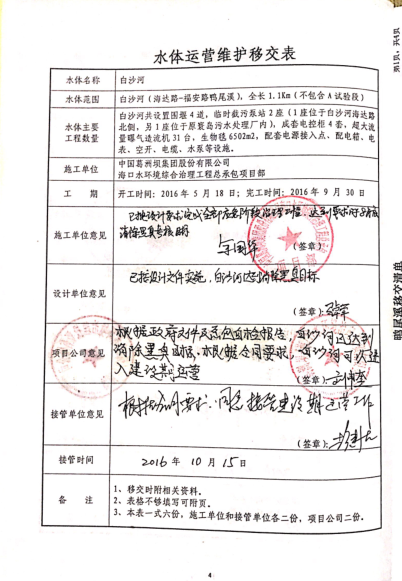 水体运营维护移交表
水体名称 白沙河
水体范围 白沙河（海达路-福安路鸭尾溪），全长1.1Km（不包含A试验段）
水体主要工程数量
白沙河共设置围堰4道，临时截污泵站2座（1座位于白沙河海达路
北侧，另1座位于原寰岛污水处理厂内），成套电控柜4套，超大流
量曝气造流机31台，生物毯6502m2，配套电源接入点、配电箱、电
表、空开、电缆、水泵等设施。
施工单位
中国葛洲坝集团股份有限公司
海口水环境综合治理工程总承包项目部
工 期 开工时间：2016年5月18日；完工时间：2016年9月30日
施工单位意见
已按设计要求完成全部
消除黑臭考核
（签章）
设计单位意见
已按设计文件实施，白沙河达到消除黑臭目标
（签章）
项目公司意见
根据政府文件及 检报告，白沙河已达到
消除黑臭目标，根据合同要求，白沙河可以进
入建设期运营
（签章）
接管单位意见
根据合同要求，同意接管建设期运营工作
（签章）
接管时间 2016年10月15日
备 注
1、移交时附相关资料。
2、表格不够填写可附页。
3、本表一式六份，施工单位和接管单位各二份，项目公司二份。
4
第1页，共4页
鸭尾溪移交清单